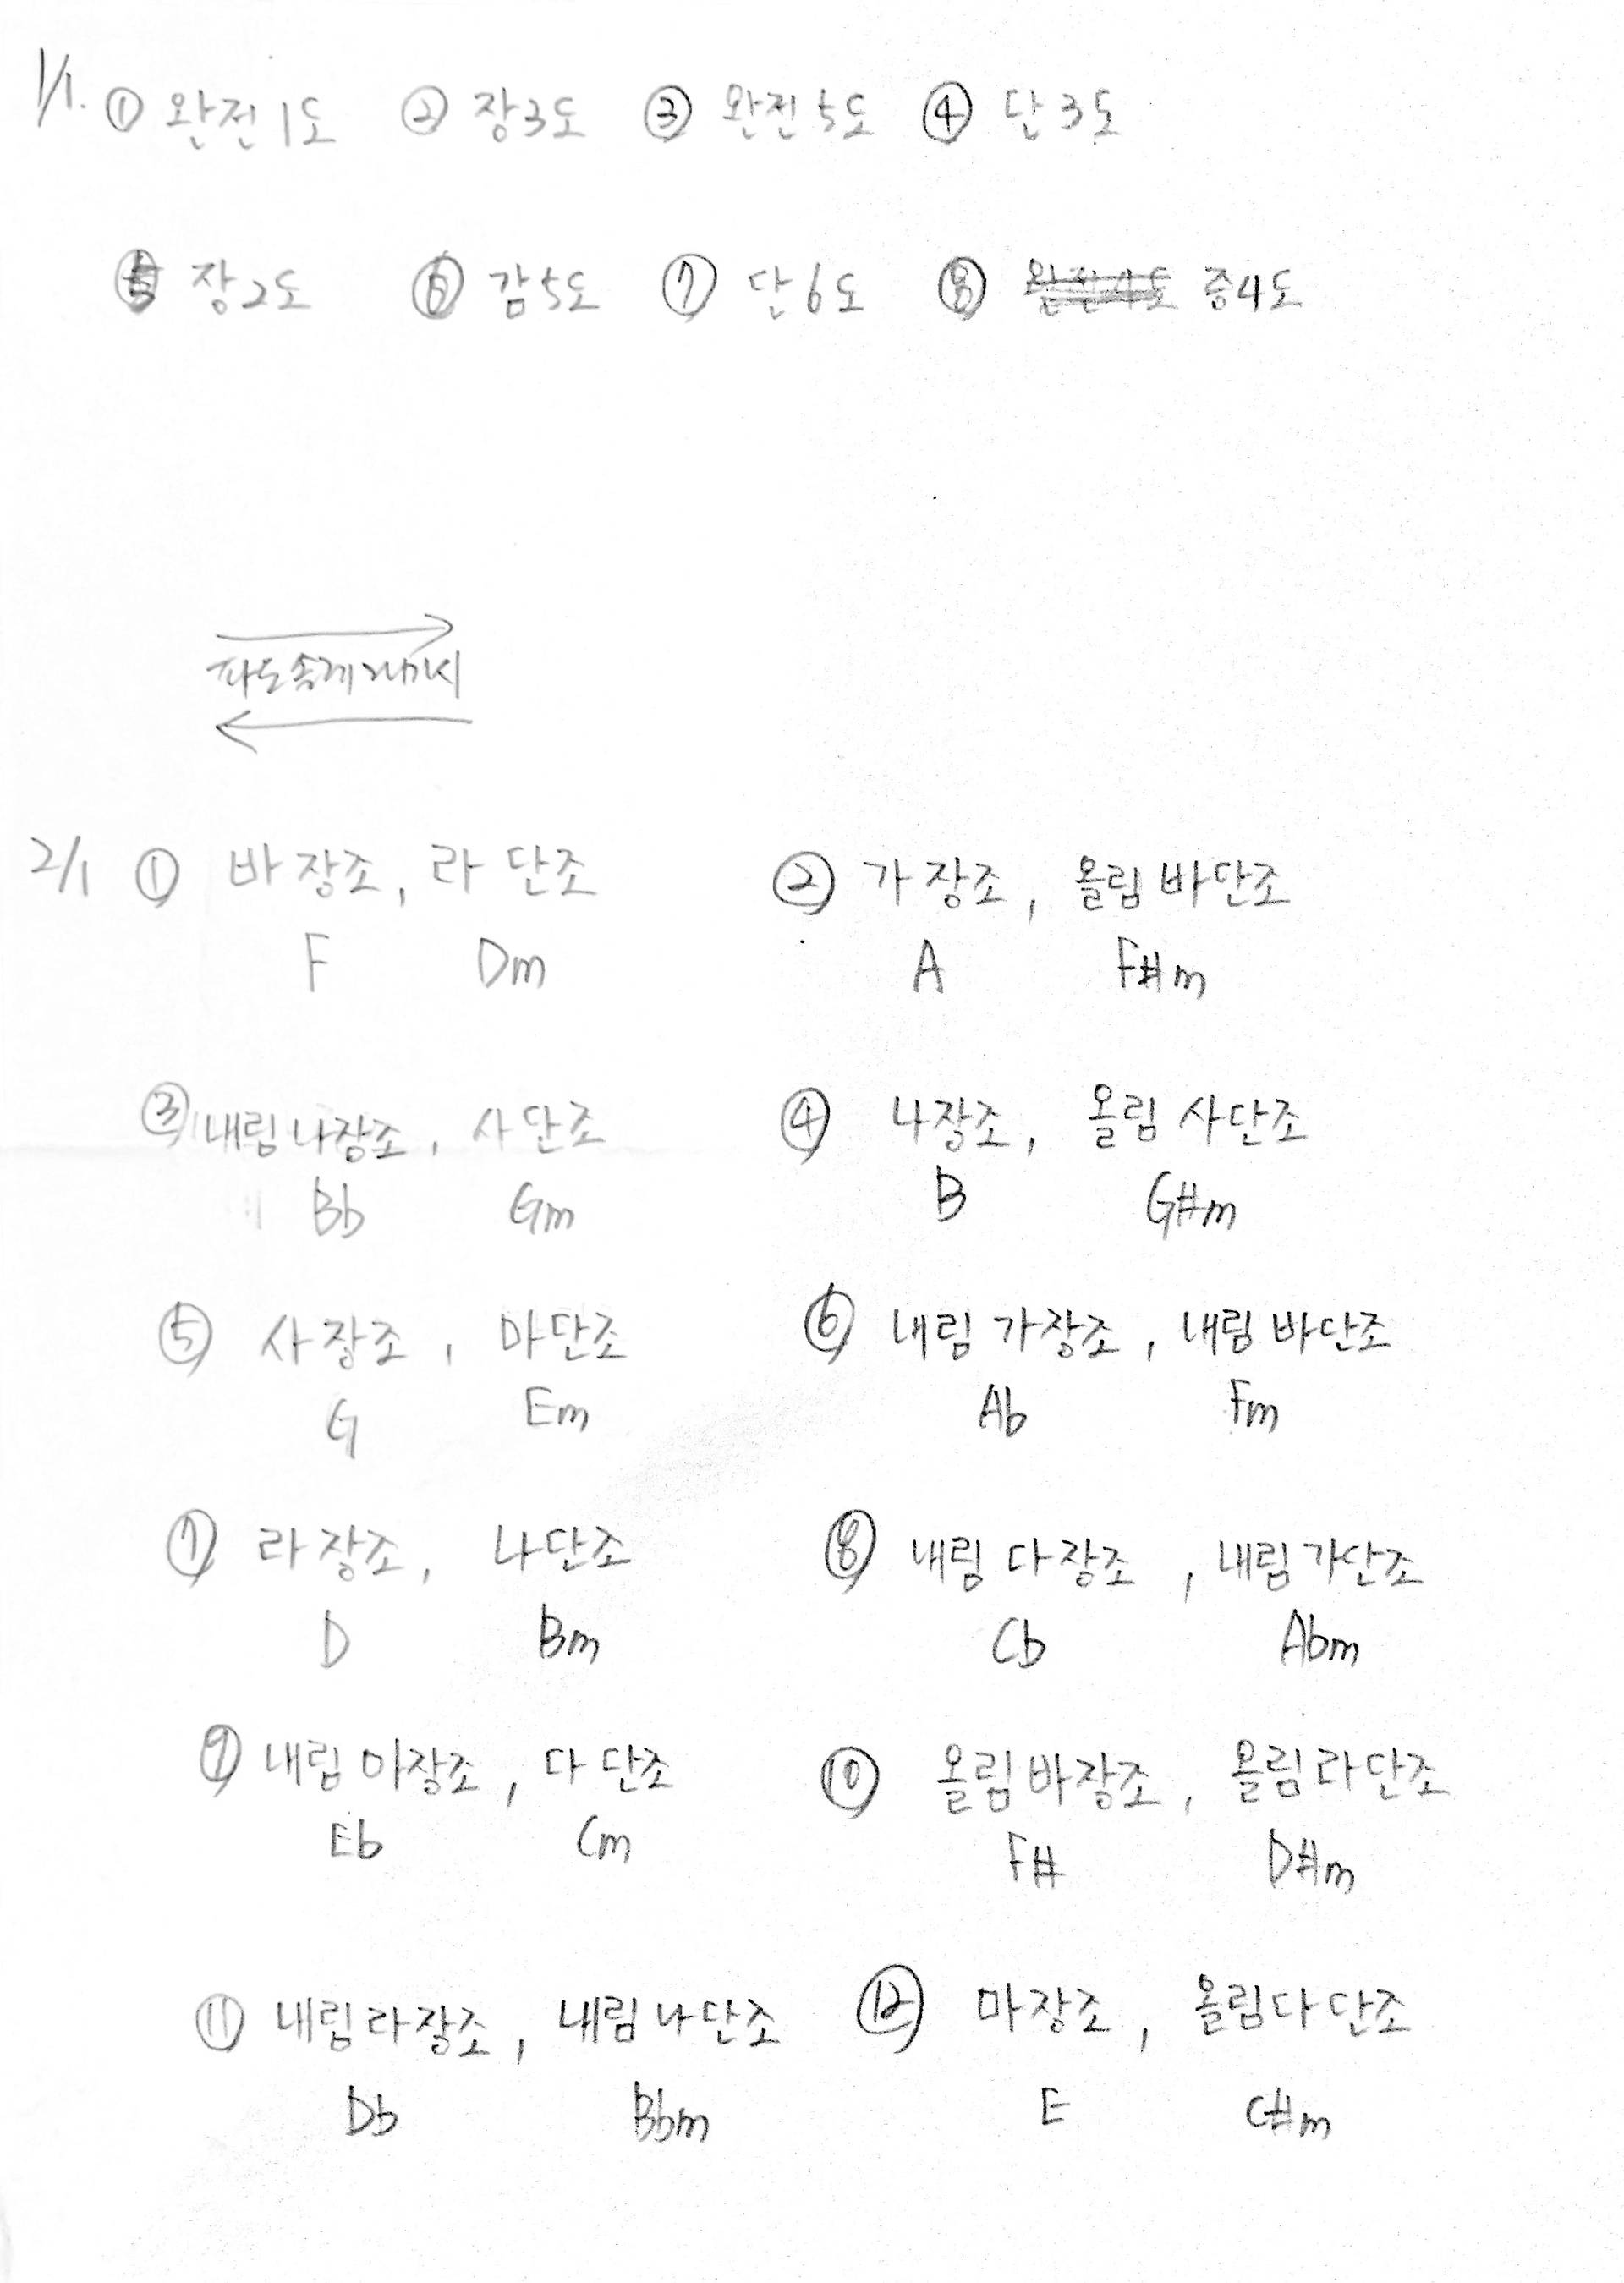 1/1. ① 완전1도 ② 장3도 ③ 완전5도 ④ 단3도
⑤ 장2도 ⑥ 감5도 ⑦ 단6도 ⑧ 완전4도 증4도
파도솔레라미시
2/1 ① 바장조, 라단조 ② 가장조, 올림바단조
F Dm A F#m
③ 내림나장조, 사단조 ④ 나장조, 올림사단조
Bb Gm B G#m
⑤ 사장조, 마단조 ⑥ 내림가장조, 내림바단조
G Em Ab Fm
⑦ 라장조, 나단조 ⑧ 내림다장조, 내림가단조
D Bm Cb Abm
⑨ 내림마장조, 다단조 ⑩ 올림바장조, 올림라단조
Eb Cm F# D#m
⑪ 내림라장조, 내림나단조 ⑫ 마장조, 올림다단조
Db Bbm E C#m